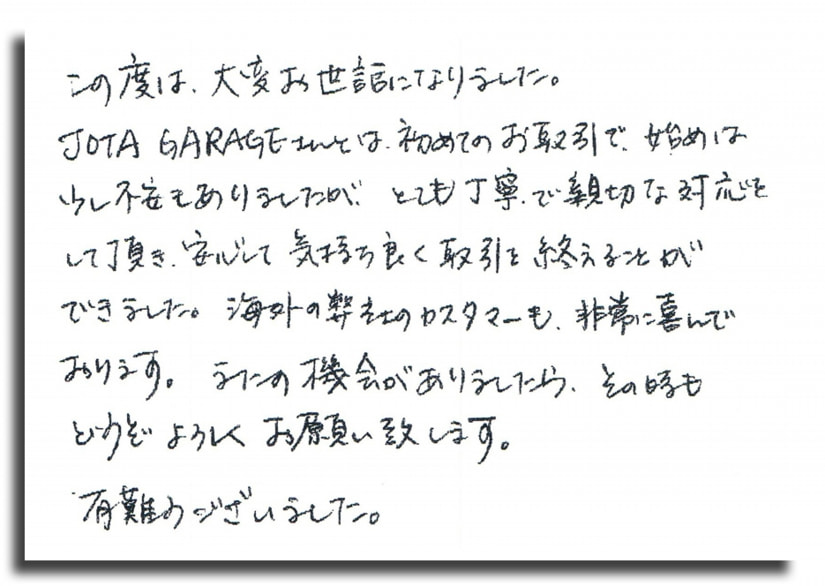 この度は、大変お世話になりました。
JOTA GARAGEさんとは、初めてのお取引で、始めは
少し不安もありましたが、とても丁寧で親切な対応を
して頂き、安心して気持ち良く取引を終えることが
できました。海外の弊社のカスタマーも、非常に喜んで
おります。またの機会がありましたら、その時も
どうぞよろしくお願い致します。
有難うございました。